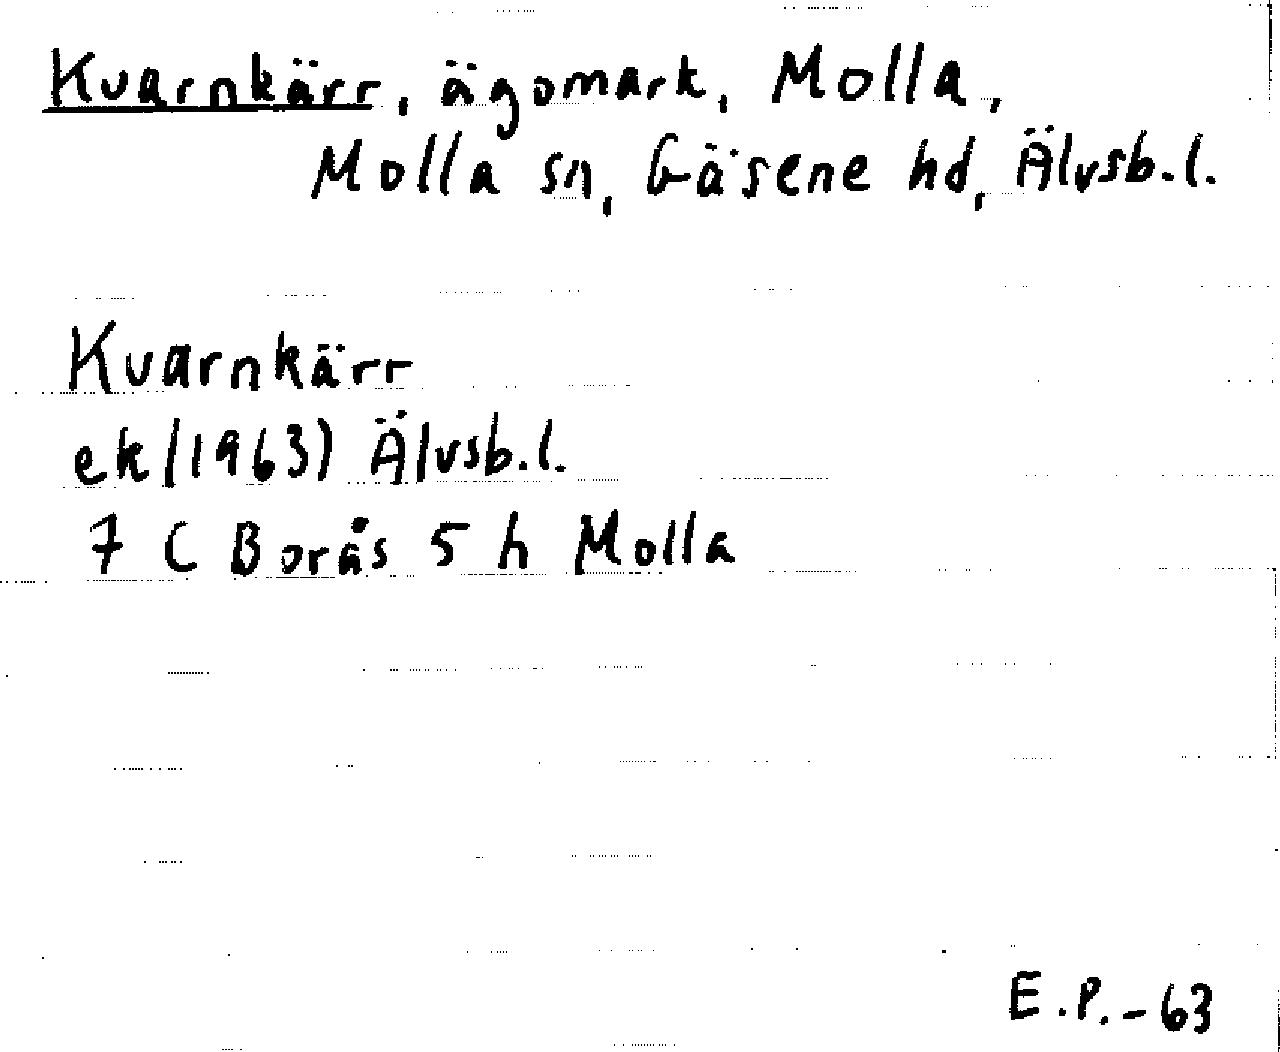 Kvarnkärr, ägomark, Molla,
Molla sn, Gäsene hd, Älvsb.l.
Kvarnkärr
ek (1963) Älvsb.l.
7 C Borås 5 h Molla
E.P.-63